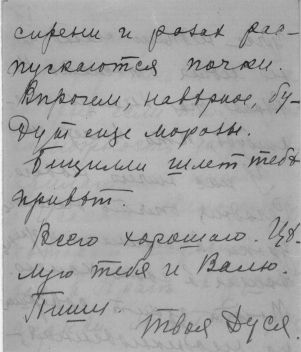 сирени и розах рас-
пускаются почки.
Впрочем, навѣрное, бу-
дут еще морозы.
Бицилли шлет тебѣ
привѣт.
Всего хорошаго. Цѣ-
лую тебя и Валю.
Пиши.
Твоя Дуся.